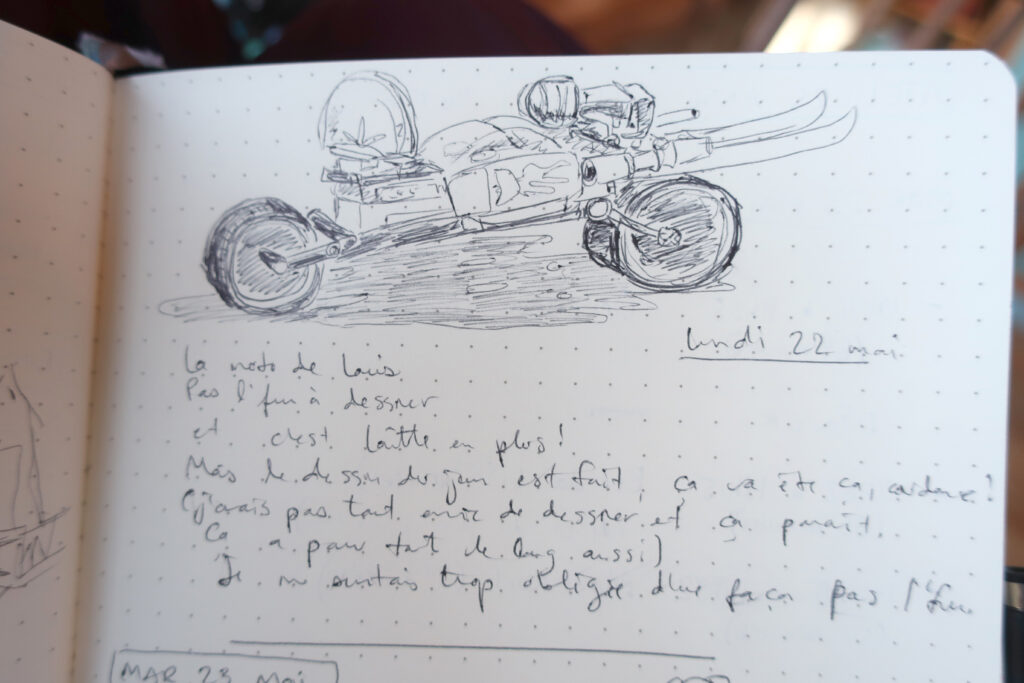 lundi 22 mai
La moto de Louis
Pas l'fun à dessiner
et c'est laitte en plus!
Mais le dessin du jour est fait, ça va être ça,
(J'avais pas tant envie de dessiner et ça paraît.
Ça a paru tout le long aussi)
Je me sentais trop obligée d'une façon pas l'fun
MAR 23 MAI